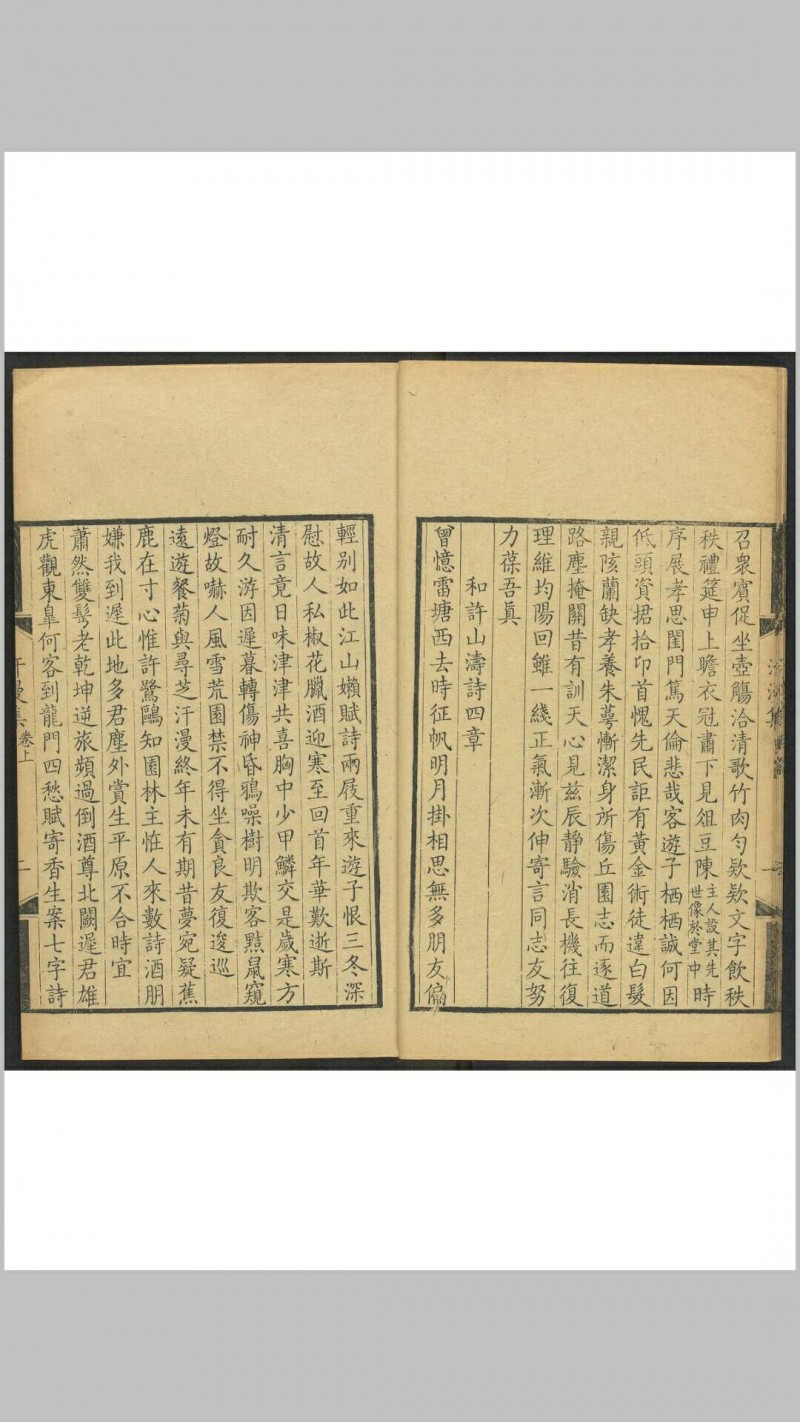 召衆賓促坐壺觴洽清歌竹肉勻欵欵文字飲秩
秩禮筵申上瞻衣冠肅下見俎豆陳主人設其先世像於堂中時
序展孝思閨門篤天倫悲哉客遊子栖栖誠何因
低頭資捃拾卬首愧先民詎有黃金術徒違白髮
親陔蘭缺孝養朱萼慚潔身所傷丘園志而逐道
路塵掩關昔有訓天心見茲辰静驗消長機往復
理維均陽回雖一綫正氣漸次伸寄言同志友努
力葆吾眞
和許山濤詩四章
曾憶雷塘西去時征帆明月掛相思無多朋友偏
輕別如此江山嬾賦詩兩屐重來遊子恨三冬深
慰故人私椒花臘酒迎寒至回首年華歎逝斯
清言竟日味津津共喜胸中少甲鱗交是歲寒方
耐久游因遲暮轉傷神昏鴉噪樹明欺客黠鼠窺
燈故嚇人風雪荒園禁不得坐貪良友復逡巡
遠遊餐菊與尋芝汗漫終年未有期昔夢宛疑蕉
鹿在寸心惟許鷺鷗知園林主恠人來數詩酒朋
嫌我到遲此地多君塵外賞生平原不合時宜
蕭然雙髩老乾坤逆旅頻過倒酒尊北闕遲君雄
虎觀東臯何客到龍門四愁賦寄香生案七字詩
汗漫集 卷上 二